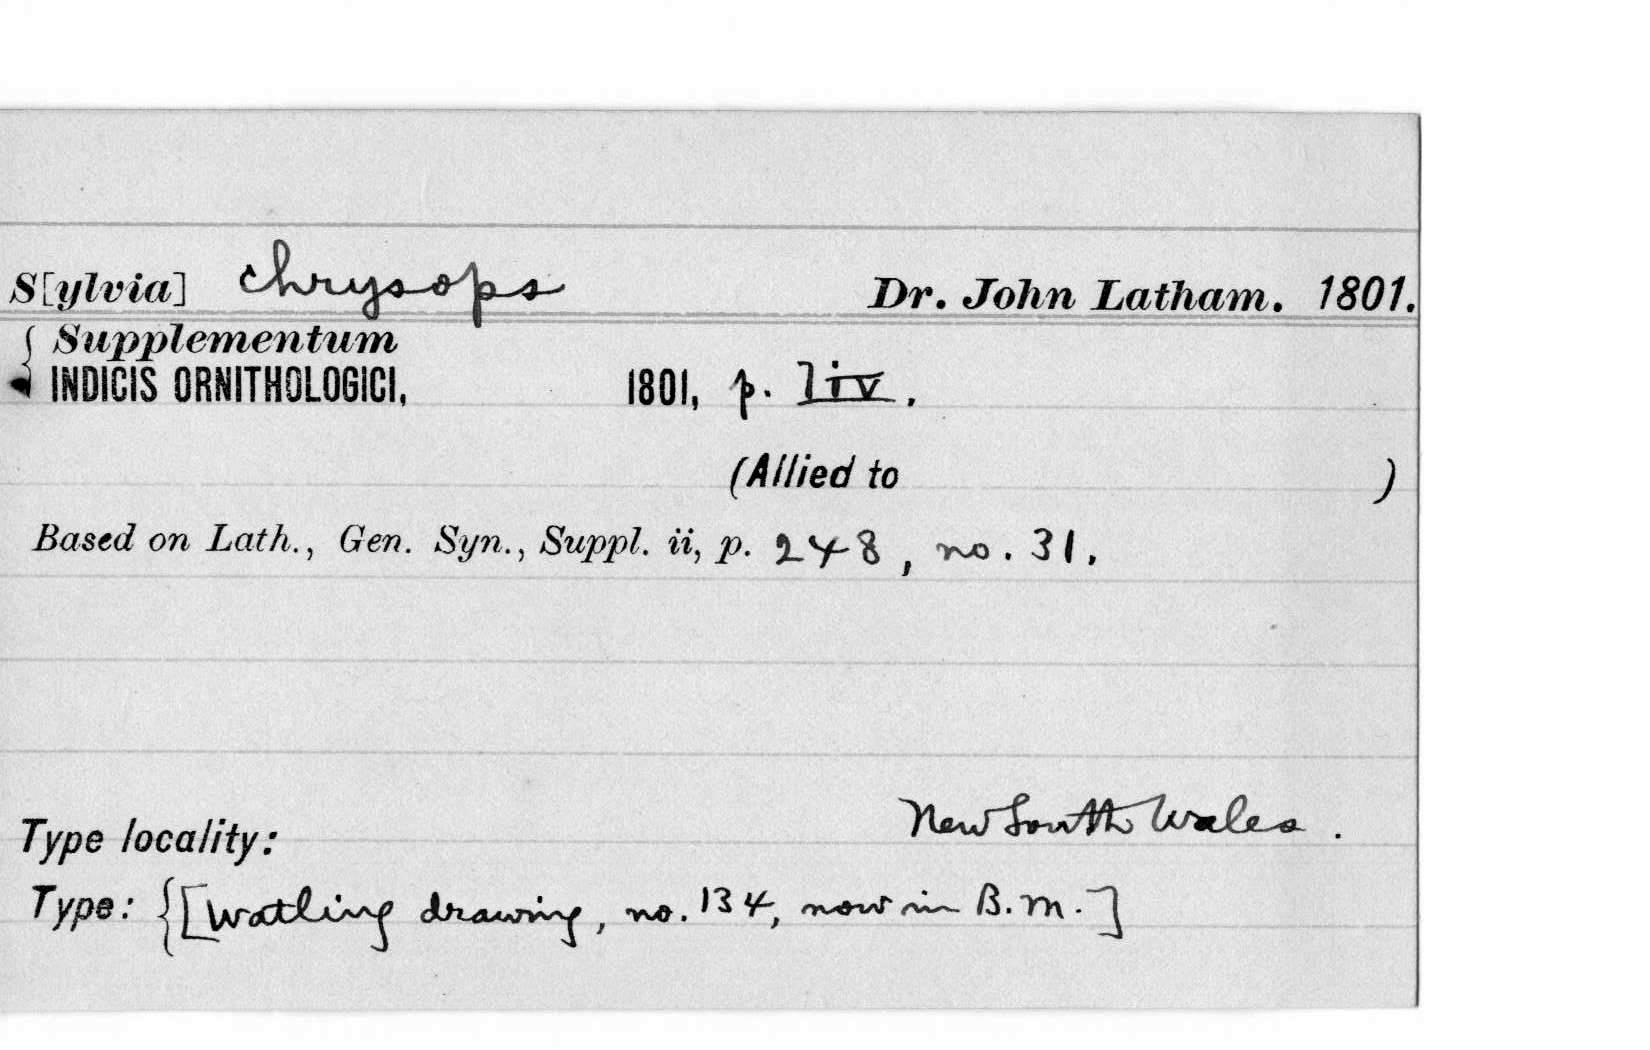 S[ylvia] chrysops Dr. John Latham. 1801.
{ Supplementum
INDICIS ORNITHOLOGICI, 1801, p. liv.
(Allied to )
Based on Lath., Gen. Syn., Suppl. ii, p. 248, no. 31.
New South Wales.
Type locality:
Type: {[Watling drawing, no. 134, now in B.M.]